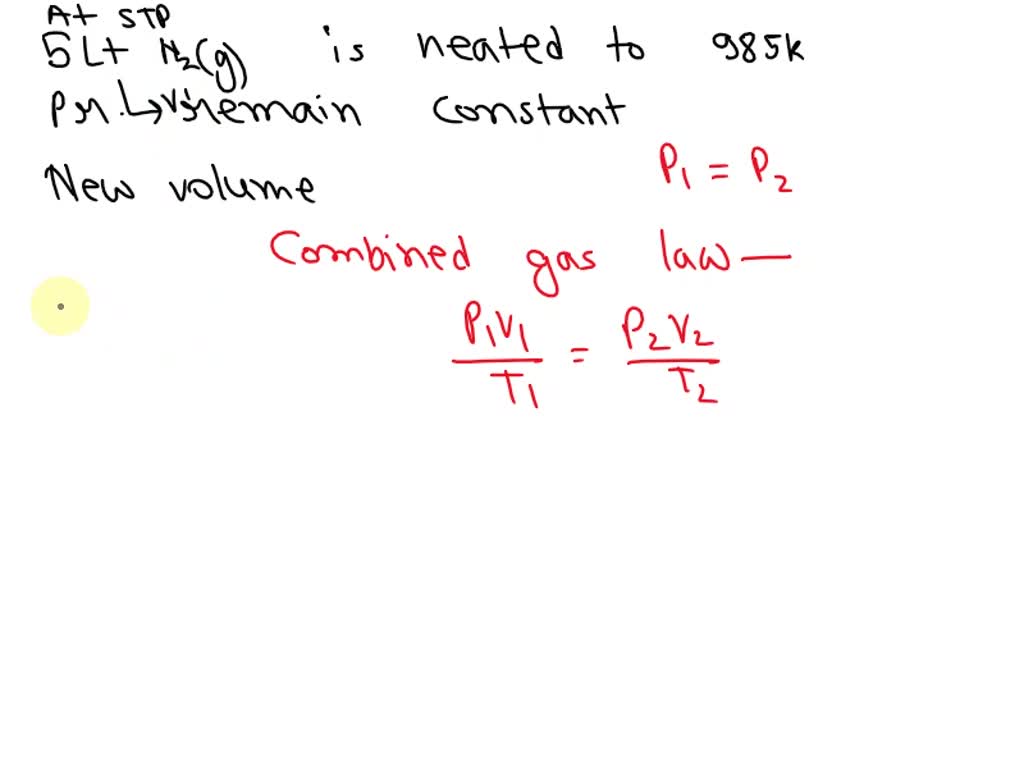 At STP
5 Lt N₂(g) is heated to 985k
remain constant
New volume
P₁ = P₂
Combined gas law —
P₁V₁/T₁ = P₂V₂/T₂